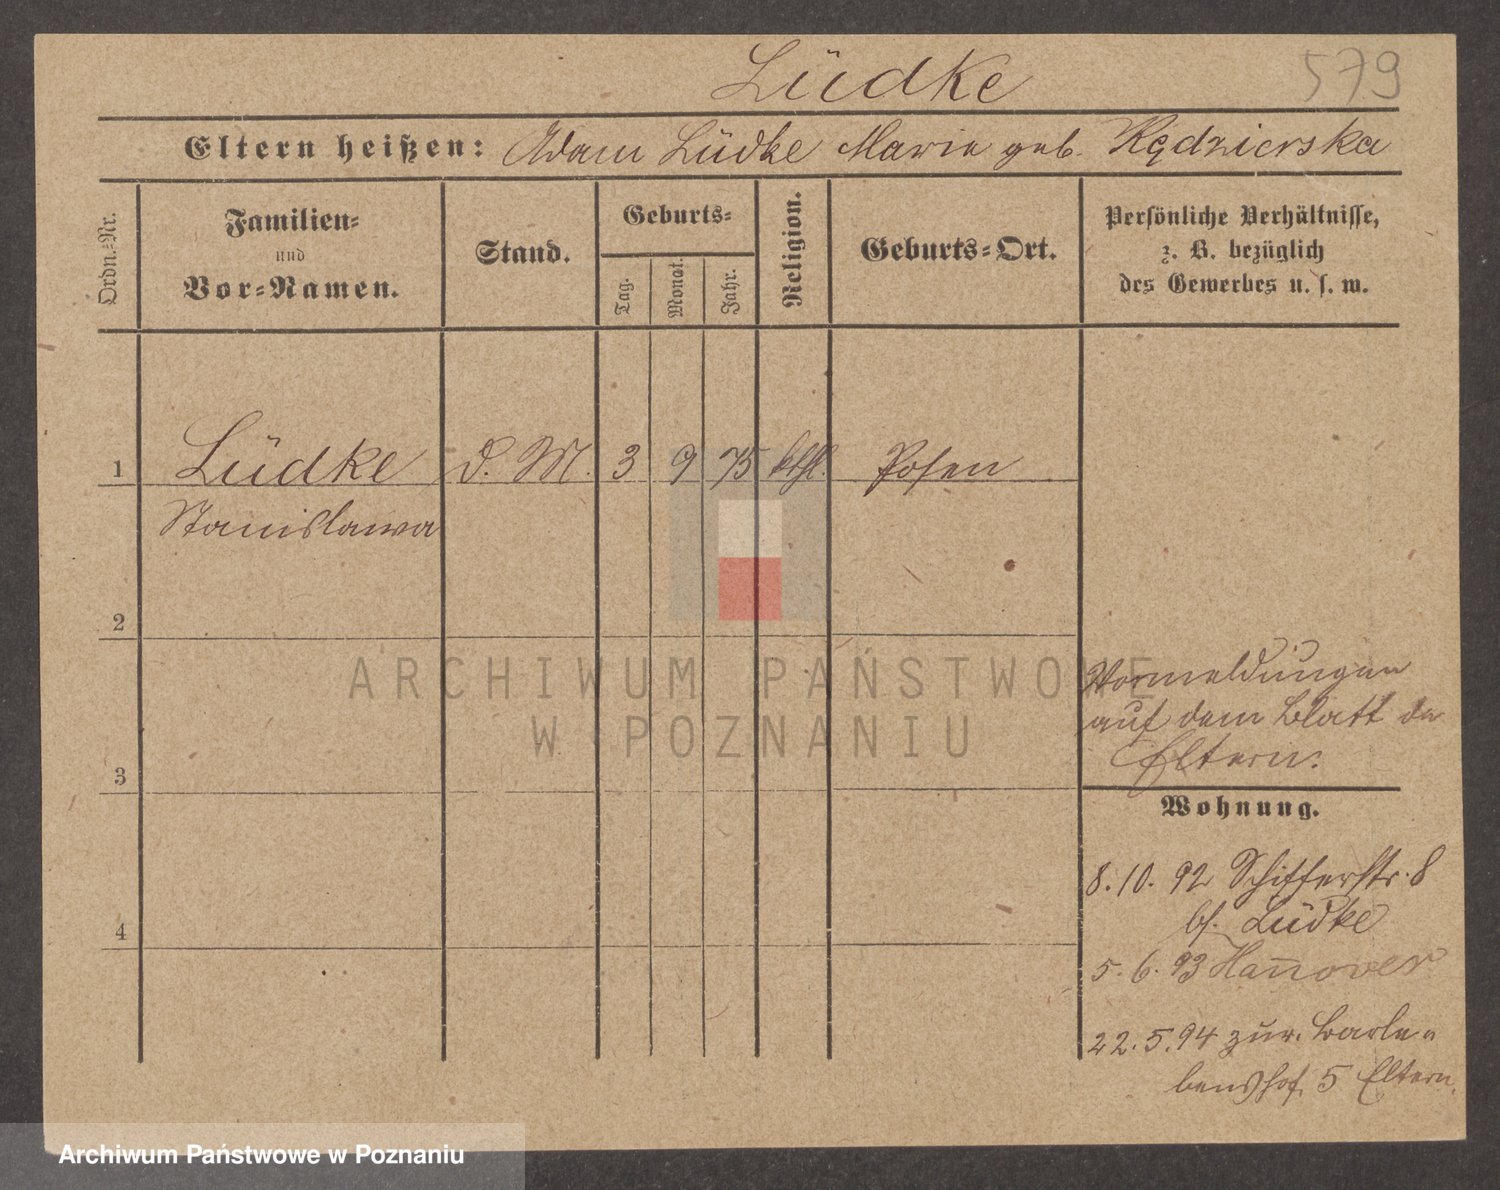 Lüdke 579
Eltern heißen: Adam Lüdke Marie geb. Kędzierska
Ordn.-Nr.
Familien-
und
Vor-Namen.
Stand.
Geburts-
Tag.
Monat.
Jahr.
Religion.
Geburts-Ort.
Persönliche Verhältnisse,
z. B. bezüglich
des Gewerbes u. s. w.
1 Lüdke d. M. 3 9 75 kth. Posen
Stanislawa
2
3
4
Vormeldungen
auf dem Blatt der
Eltern.
Wohnung.
8.10.92 Schifferstr. 8
bs. Lüdke
5.6.93 Hannover
22.5.94 zur. Barle-
benshof 5 Eltern.
ARCHIWUM PAŃSTWOWE
W POZNANIU
Archiwum Państwowe w Poznaniu